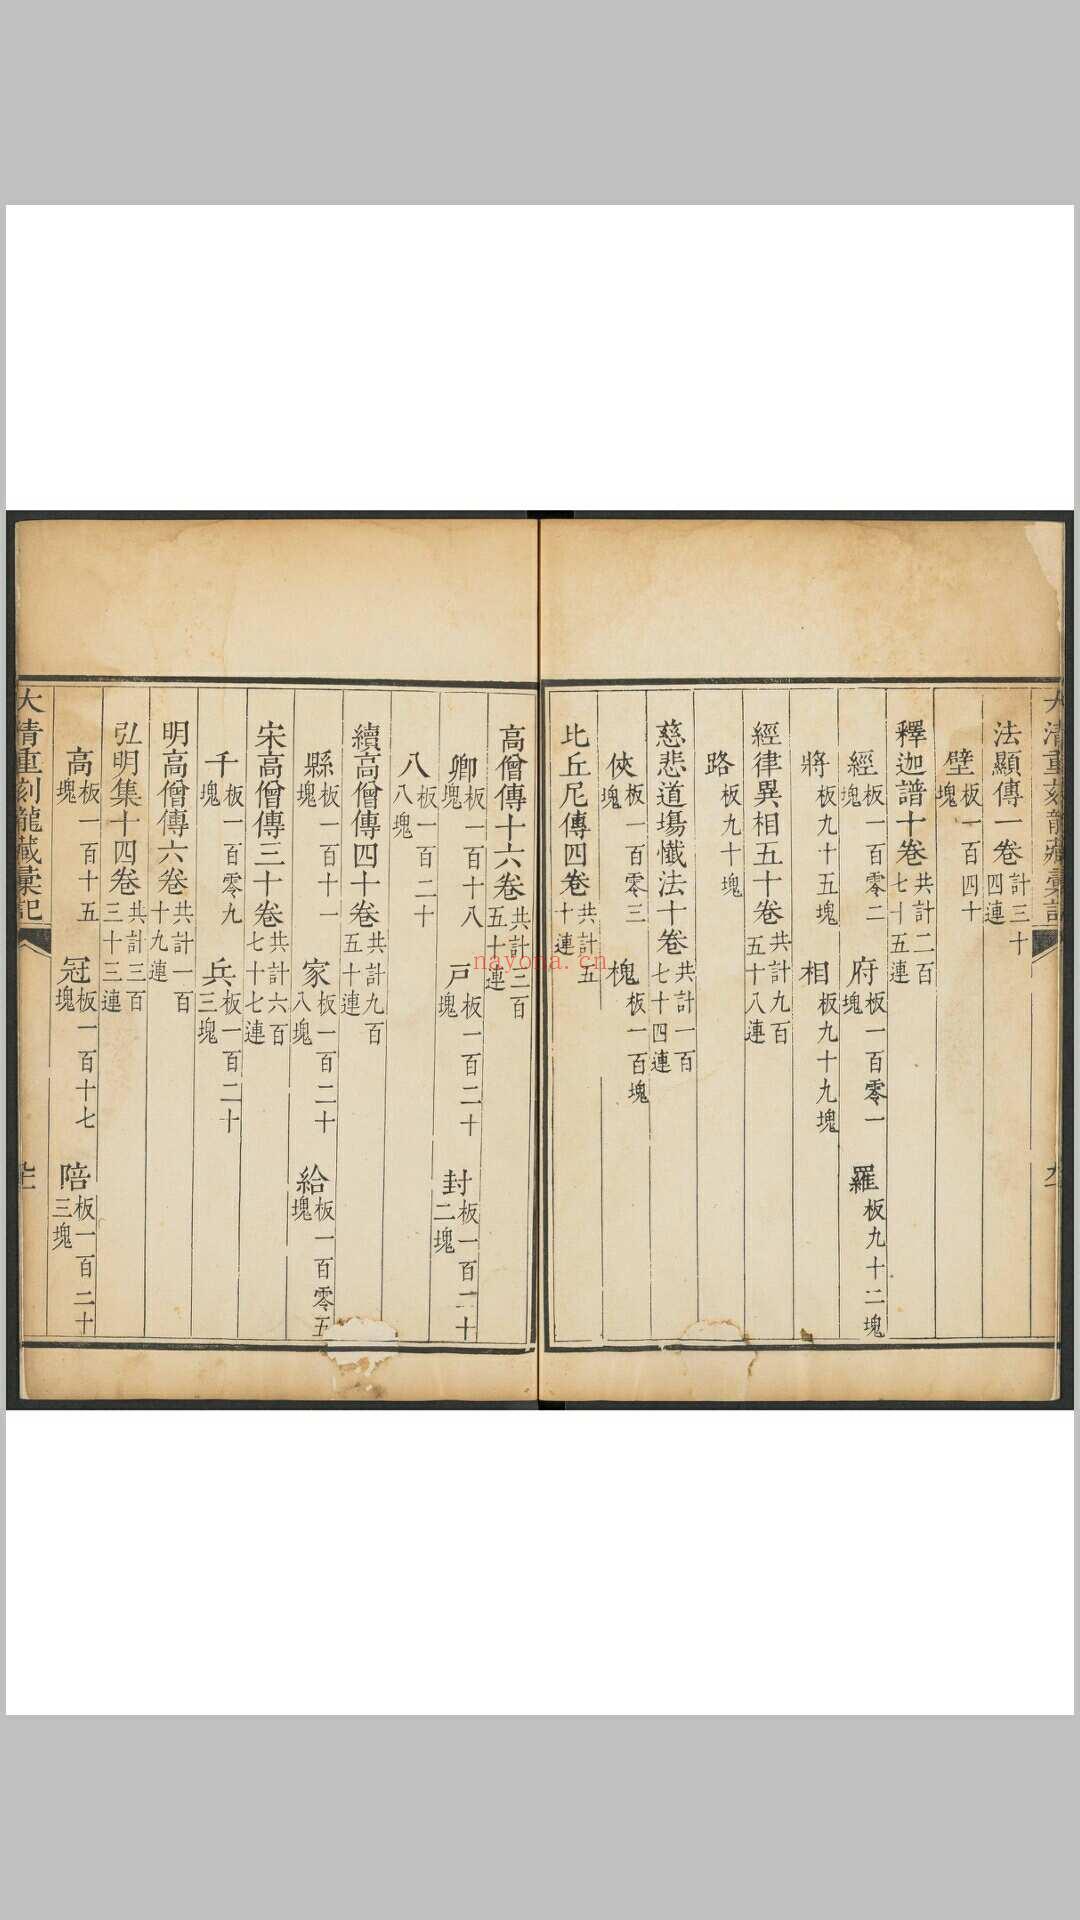 大清重刻龍藏彙記
法顯傳一卷 計三十四連
壁 板一百四十塊
釋迦譜十卷 共計二百七十五連
經 板一百零二塊 府 板一百零一塊 羅 板九十二塊
將 板九十五塊 相 板九十九塊
路 板九十塊
經律異相五十卷 共計九百五十八連
慈悲道場懺法十卷 共計一百七十四連
俠 板一百零三塊 槐 板一百塊
比丘尼傳四卷 共計五十連
高僧傳十六卷 共計三百五十連
卿 板一百十八塊 戶 板一百二十塊 封 板一百二十二塊
八 板一百二十八塊
續高僧傳四十卷 共計九百五十連
縣 板一百十一塊 家 板一百二十八塊 給 板一百零五塊
宋高僧傳三十卷 共計六百七十七連
千 板一百零九塊 兵 板一百二十三塊
明高僧傳六卷 共計一百十九連
弘明集十四卷 共計三百三十三連
高 板一百十五塊 冠 板一百十七塊 陪 板一百二十三塊
大清重刻龍藏彙記
nayona.cn